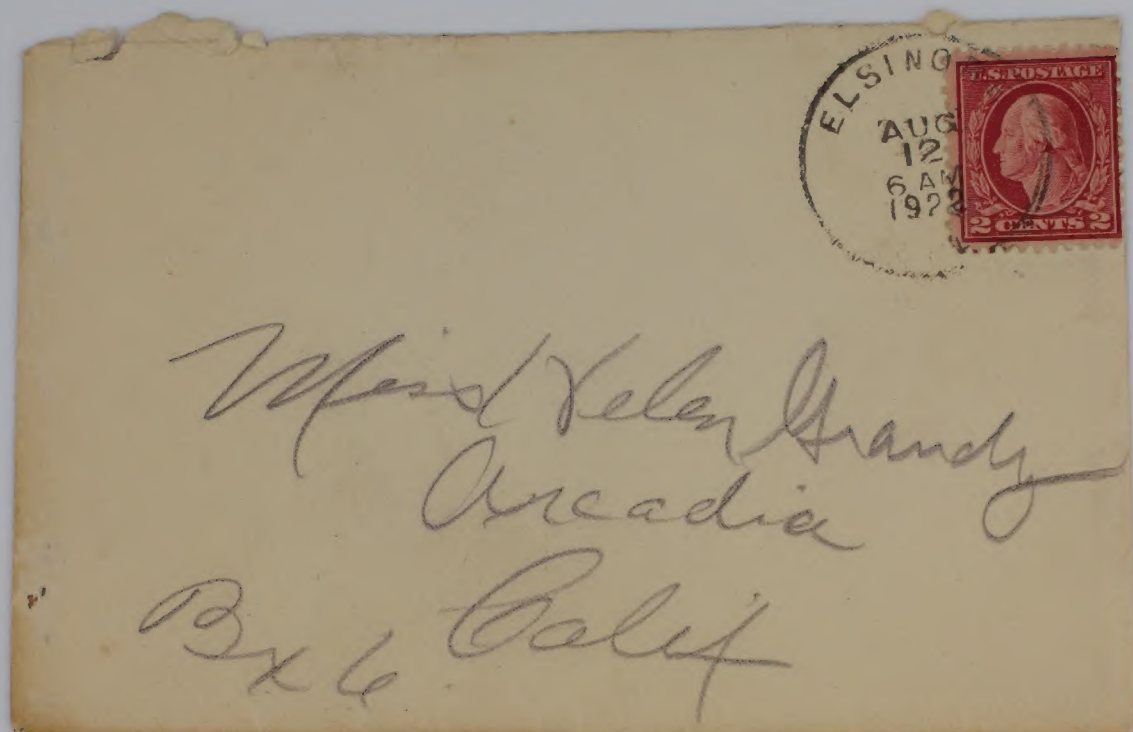 ELSINO
AUG
12
6 AM
1922
U.S. POSTAGE
2 CENTS 2
Miss Helen Grandy
Arcadia
Bx 6. Calif